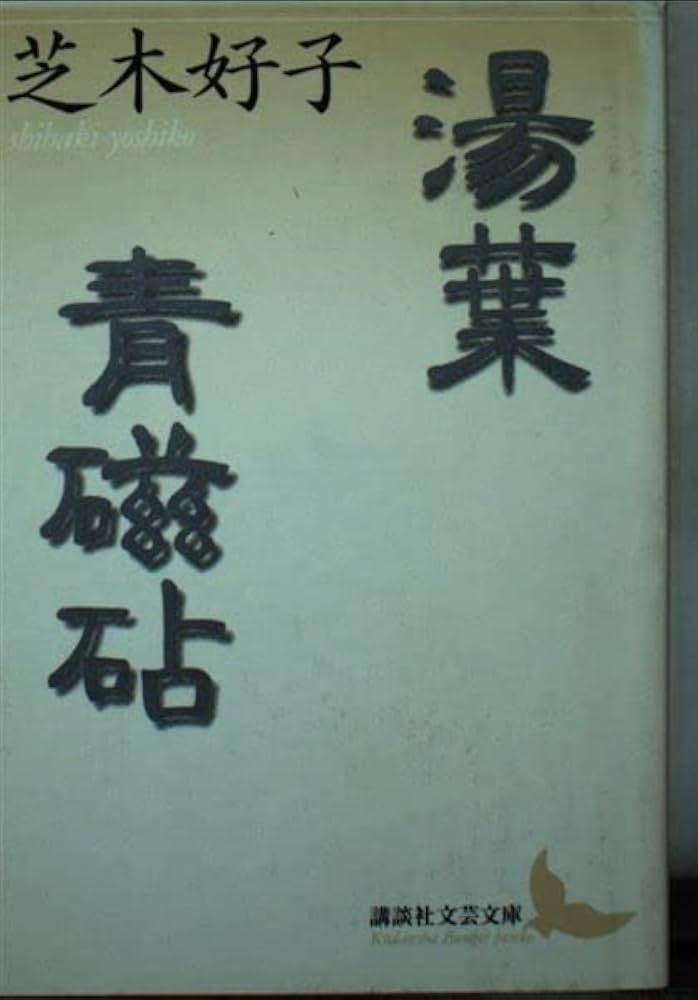 芝木好子
shibaki yoshiko
湯葉
青磁砧
講談社文芸文庫
Kodansha Bungei bunko